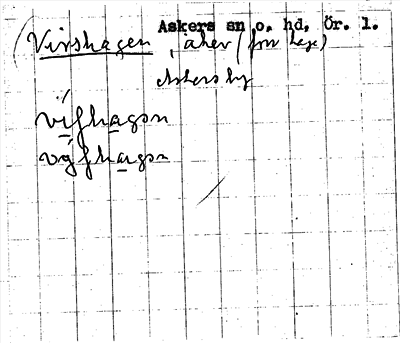 Askers sn o. hd, Ör. l.
(Virshagen, åker (förr hage)
Askersby
vı́ʃhagən
vý́ʃhagən